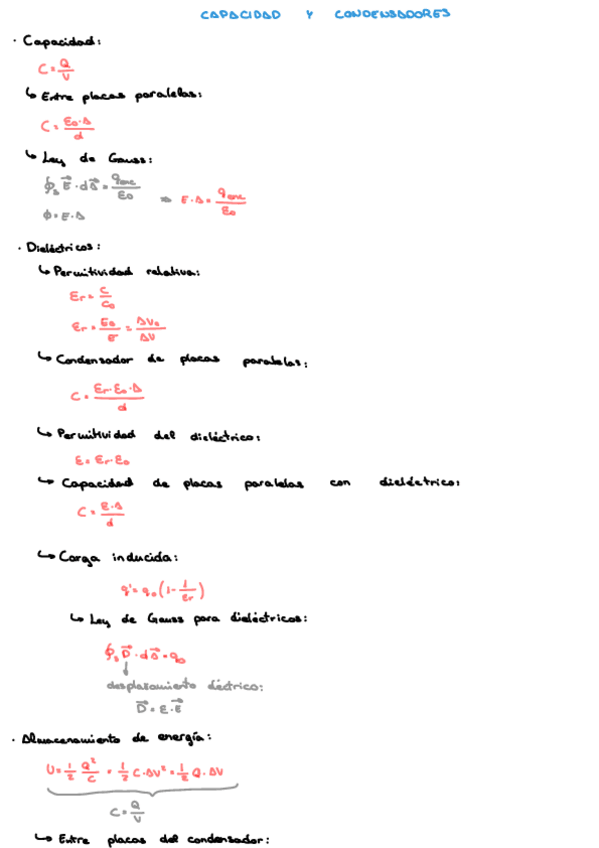 CAPACIDAD Y CONDENSADORES
· Capacidad:
C = Q/V
↳ Entre placas paralelas:
C = ε₀·A/d
↳ Ley de Gauss:
∮ₛ E⃗·dA⃗ = q_enc/ε₀ ⇒ E·A = q_enc/ε₀
ϕ = E·A
· Dieléctricos:
↳ Permitividad relativa:
εr = C/C₀
εr = E₀/E = ΔV₀/ΔV
↳ Condensador de placas paralelas:
C = εr·ε₀·A/d
↳ Permitividad del dieléctrico:
ε = εr·ε₀
↳ Capacidad de placas paralelas con dieléctrico:
C = ε·A/d
↳ Carga inducida:
q' = q₀(1-1/εr)
↳ Ley de Gauss para dieléctricos:
∮ₛ D⃗·dA⃗ = q₀
↓
desplazamiento eléctrico:
D⃗ = ε·E⃗
· Almacenamiento de energía:
U = 1/2 Q²/C = 1/2 C·ΔV² = 1/2 Q·ΔV
C = Q/V
↳ Entre placas del condensador: